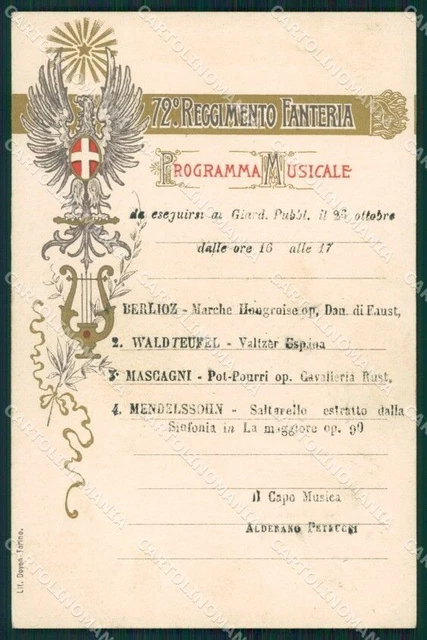 72° REGGIMENTO FANTERIA
PROGRAMMA MUSICALE
da eseguirsi ai Giard. Pubbl. il 26 ottobre
dalle ore 16 alle 17
BERLIOZ - Marche Hongroise op, Dan. di Faust,
2. WALDTEUFEL - Valtzer Espana
3 MASCAGNI - Pot-Pourri op. Cavalleria Rust,
4. MENDELSSOHN - Saltarello estratto dalla
Sinfonia in La maggiore op. 90
Il Capo Musica
ALDERANO PETRUCCI
Lit. Doyen Torino.
CARTOLINOMANIA